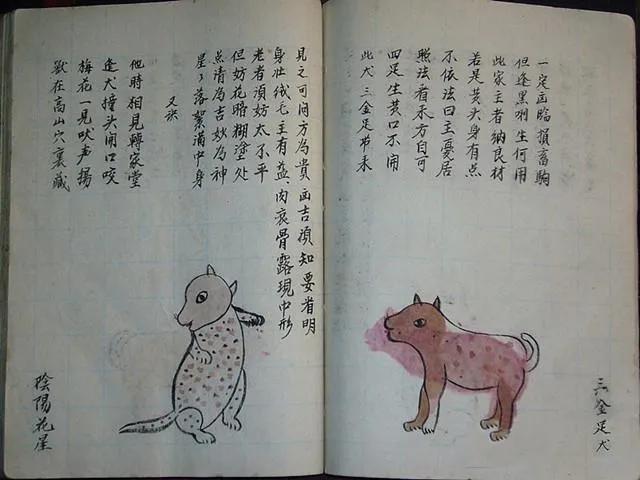 一定凶臨損畜駒
但逢黑咧生何用
此家主者納良材
若是黄头身有点
不依法曰主憂居
照法看禾方自可
四足生黄口不闹
此犬三金足带禾
三金足犬
見之可问方為貴凶吉須知要省明
身壮绒毛主有益、肉衰骨露現中形
老者須妨太不平
但妨花暗糊塗处
点清為吉妙為神
星々落絮滿中身
又诀
他時相見轉家堂
逢犬撞头闹口咬
梅花一見吠声揚
獸在高山穴裏藏
陰陽花星